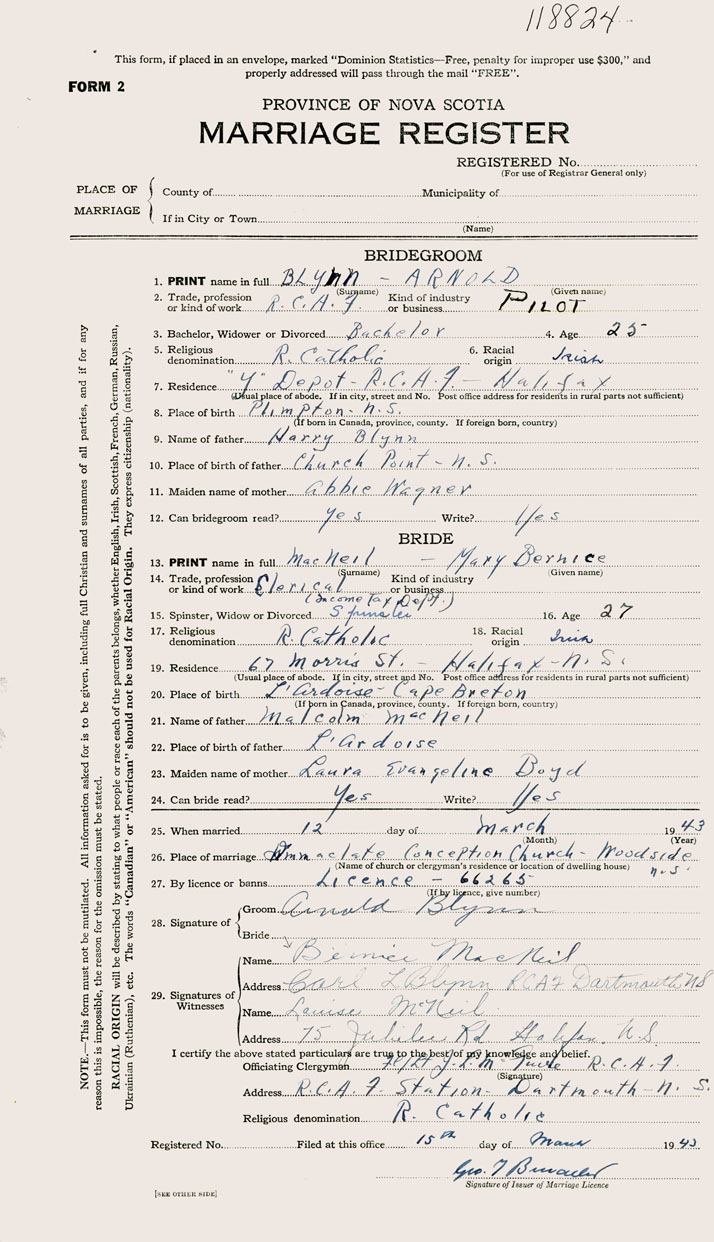 118824
This form, if placed in an envelope, marked "Dominion Statistics—Free, penalty for improper use $300," and
properly addressed will pass through the mail "FREE".
FORM 2
PROVINCE OF NOVA SCOTIA
MARRIAGE REGISTER
REGISTERED No.
(For use of Registrar General only)
PLACE OF MARRIAGE
County of Municipality of
If in City or Town
(Name)
BRIDEGROOM
1. PRINT name in full BLYNN - ARNOLD
(Surname) (Given name)
2. Trade, profession or kind of work R.C.A.F. Kind of industry or business PILOT
3. Bachelor, Widower or Divorced Bachelor 4. Age 25
5. Religious denomination R. Catholic 6. Racial origin Irish
7. Residence "Y" Depot - R.C.A.F. - Halifax
(Usual place of abode. If in city, street and No. Post office address for residents in rural parts not sufficient)
8. Place of birth Plimpton - N.S.
(If born in Canada, province, county. If foreign born, country)
9. Name of father Harry Blynn
10. Place of birth of father Church Point - N.S.
11. Maiden name of mother Abbie Wagner
12. Can bridegroom read? Yes Write? Yes
BRIDE
13. PRINT name in full MacNeil - Mary Bernice
(Surname) (Given name)
14. Trade, profession or kind of work Clerical Kind of industry or business
(Income Tax Dept.)
15. Spinster, Widow or Divorced Spinster 16. Age 27
17. Religious denomination R. Catholic 18. Racial origin Irish
19. Residence 67 Morris St. - Halifax - N.S.
(Usual place of abode. If in city, street and No. Post office address for residents in rural parts not sufficient)
20. Place of birth L'Ardoise - Cape Breton
(If born in Canada, province, county. If foreign born, country)
21. Name of father Malcolm MacNeil
22. Place of birth of father L'Ardoise
23. Maiden name of mother Laura Evangeline Boyd
24. Can bride read? Yes Write? Yes
25. When married 12 day of March 1943
(Month) (Year)
26. Place of marriage Immaclate Conception Church - Woodside
(Name of church or clergyman's residence or location of dwelling house) N.S.
27. By licence or banns Licence - 66265
(If by licence, give number)
28. Signature of
Groom Arnold Blynn
Bride
29. Signatures of Witnesses
Name Bernice MacNeil
Address Carl L Blynn RCAF Dartmouth NS
Name Louise McNeil
Address 75 Jubilee Rd Halifax N.S.
I certify the above stated particulars are true to the best of my knowledge and belief.
Officiating Clergyman F/Lt J.L.M. R.C.A.F.
(Signature)
Address R.C.A.F Station - Dartmouth - N.S.
Religious denomination R. Catholic
Registered No. Filed at this office 15th day of March 1943
Geo. T
Signature of Issuer of Marriage Licence
[SEE OTHER SIDE]
NOTE.—This form must not be mutilated. All information asked for is to be given, including full Christian and surnames of all parties, and if for any
reason this is impossible, the reason for the omission must be stated.
RACIAL ORIGIN will be described by stating to what people or race each of the parents belongs, whether English, Irish, Scottish, French, German, Russian,
Ukrainian (Ruthenian), etc. The words "Canadian" or "American" should not be used for Racial Origin. They express citizenship (nationality).